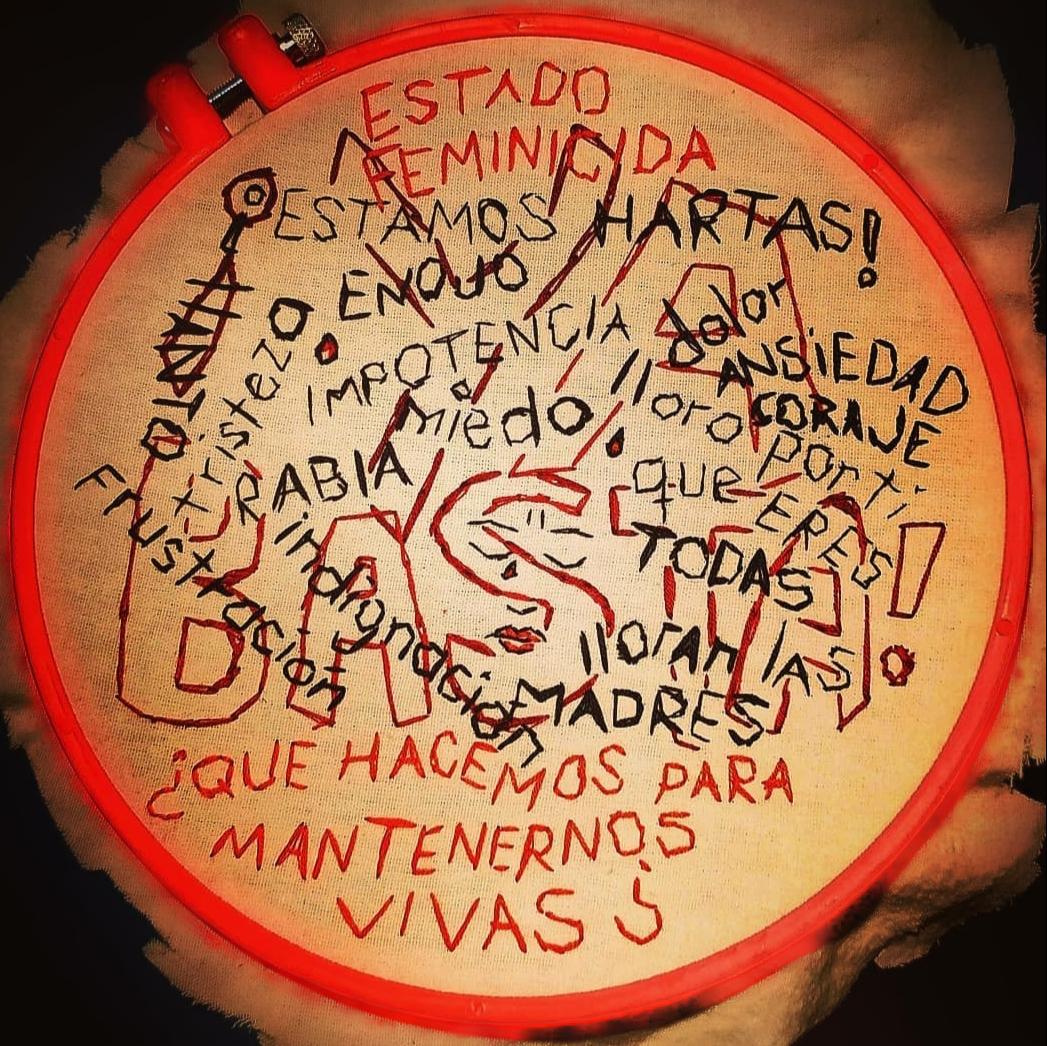 ESTADO
FEMINICIDA
ESTAMOS HARTAS!
YA
ENOJO
tristeza
IMPOTENCIA
dolor
ANSiEDAD
CORAJE
miedo
lloro por ti
que ERES
TODAS
RABIA
Frustracion
indignacion
BASTA!
lloran lAS
MADRES
¿QUE HACEMOS PARA
MANTENERNOS
VIVAS ¿